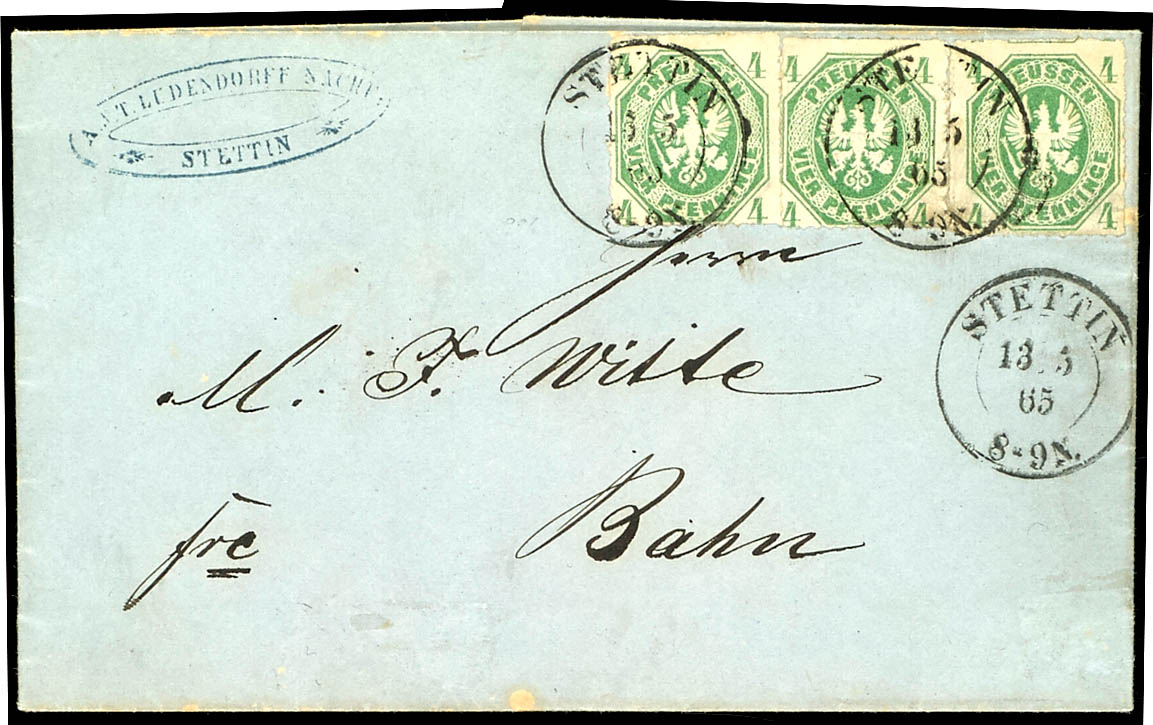 A. F. T. LUDENDORFF NACHF.
STETTIN
4 PREUSSEN 4
4 VIER PFENNINGE 4
4 PREUSSEN 4
4 VIER PFENNINGE 4
PREUSSEN 4
4 VIER PFENNINGE 4
STETTIN
13 5
65
8-9N.
STETTIN
13 5
65
8-9N.
Herrn
M. F. Witte
STETTIN
13. 5
65
8-9N.
frc Bahn